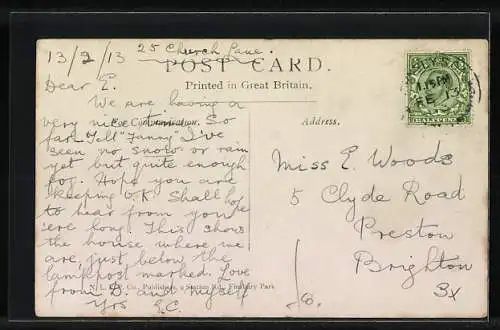 13/2/13 25 Church Lane.
POST CARD.
Printed in Great Britain.
Dear E.
We are having a
very nice time. So
For Communication.
far "Tell "Fanny" I've
seen no snow or rain
yet but quite enough
fog. Hope you are
keeping O.K. Shall hope
to hear from you
'ere long. This shows
the house where we
are, just below the
lamppost marked. Love
from D. and myself
Yrs E.C.
Address.
Miss E. Woods
5 Clyde Road
Preston
Brighton
3x
Publishers, 2 Station Rd., Finsbury Park
HALFPENNY